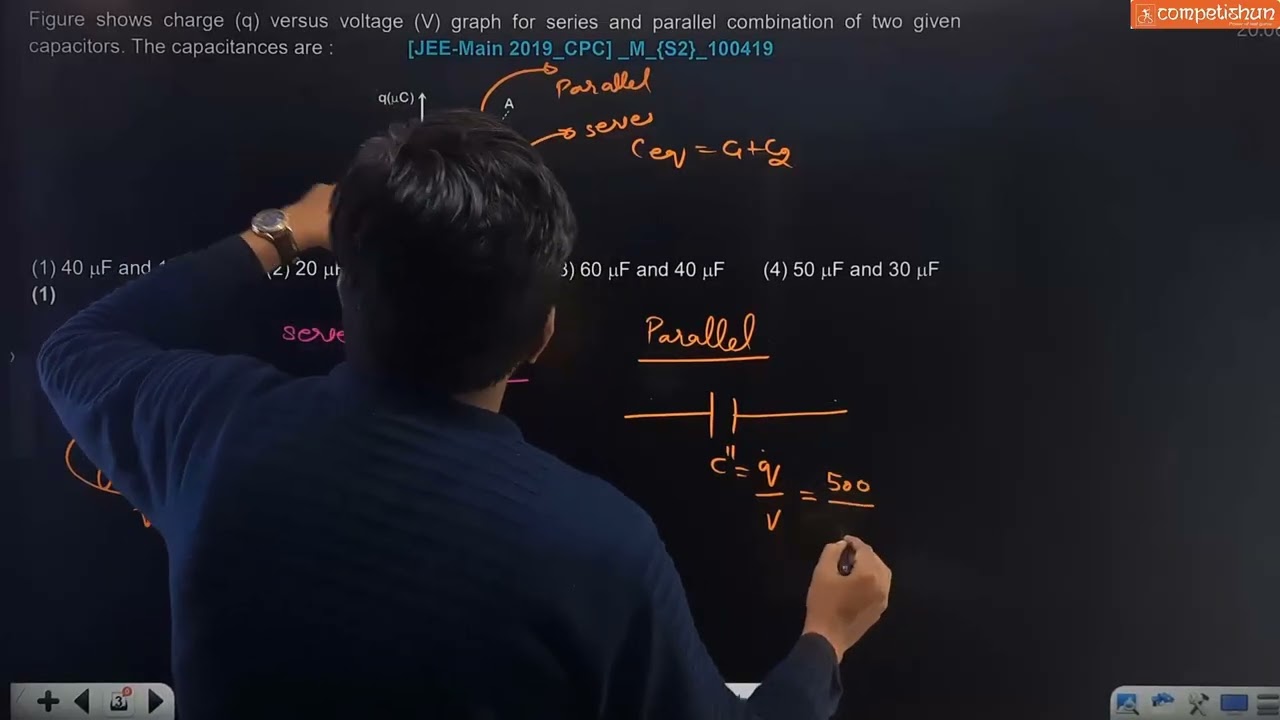 competishun
Figure shows charge (q) versus voltage (V) graph for series and parallel combination of two given
capacitors. The capacitances are : [JEE-Main 2019_CPC] _M_{S2}_100419
Parallel
q(μC)
A
series
Ceq = C1+C2
(1) 40 μF and
(2) 20
3) 60 μF and 40 μF
(4) 50 μF and 30 μF
(1)
Parallel
C" = q/V = 500
3